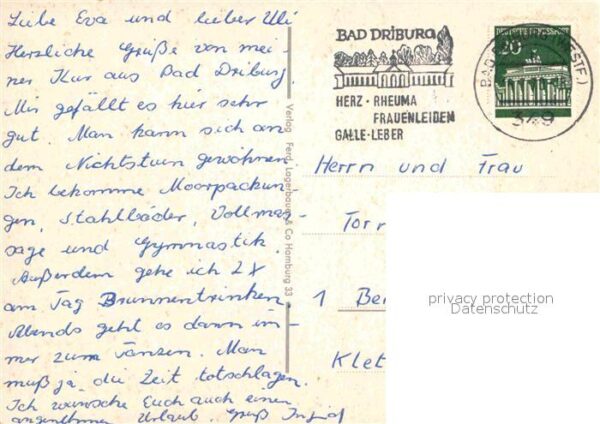 Liebe Eva und lieber Uli
Herzliche Grüße von mei-
ner Kur aus Bad Driburg.
Mir gefällt es hier sehr
gut. Man kann sich an
dem Nichtstun gewöhnen.
Ich bekomme Moorpackun-
gen, Stahlbäder, Vollmas-
sage und Gymnastik.
Außerdem gehe ich 2x
am Tag Brunnentrinken.
Abends geht es dann im-
mer zum Tanzen. Man
muß ja die Zeit totschlagen.
Ich wünsche Euch auch einen
angenehmen Urlaub. Gruß
Verlag Ferd. Lagerbauer & Co Hamburg 33
BAD DRIBURG
HERZ · RHEUMA
FRAUENLEIDEN
GALLE · LEBER
DEUTSCHE BUNDESPOST
20
BAD
(WESTF.)
349
Herrn und Frau
Torr
1 Ber
Klet
privacy protection
Datenschutz